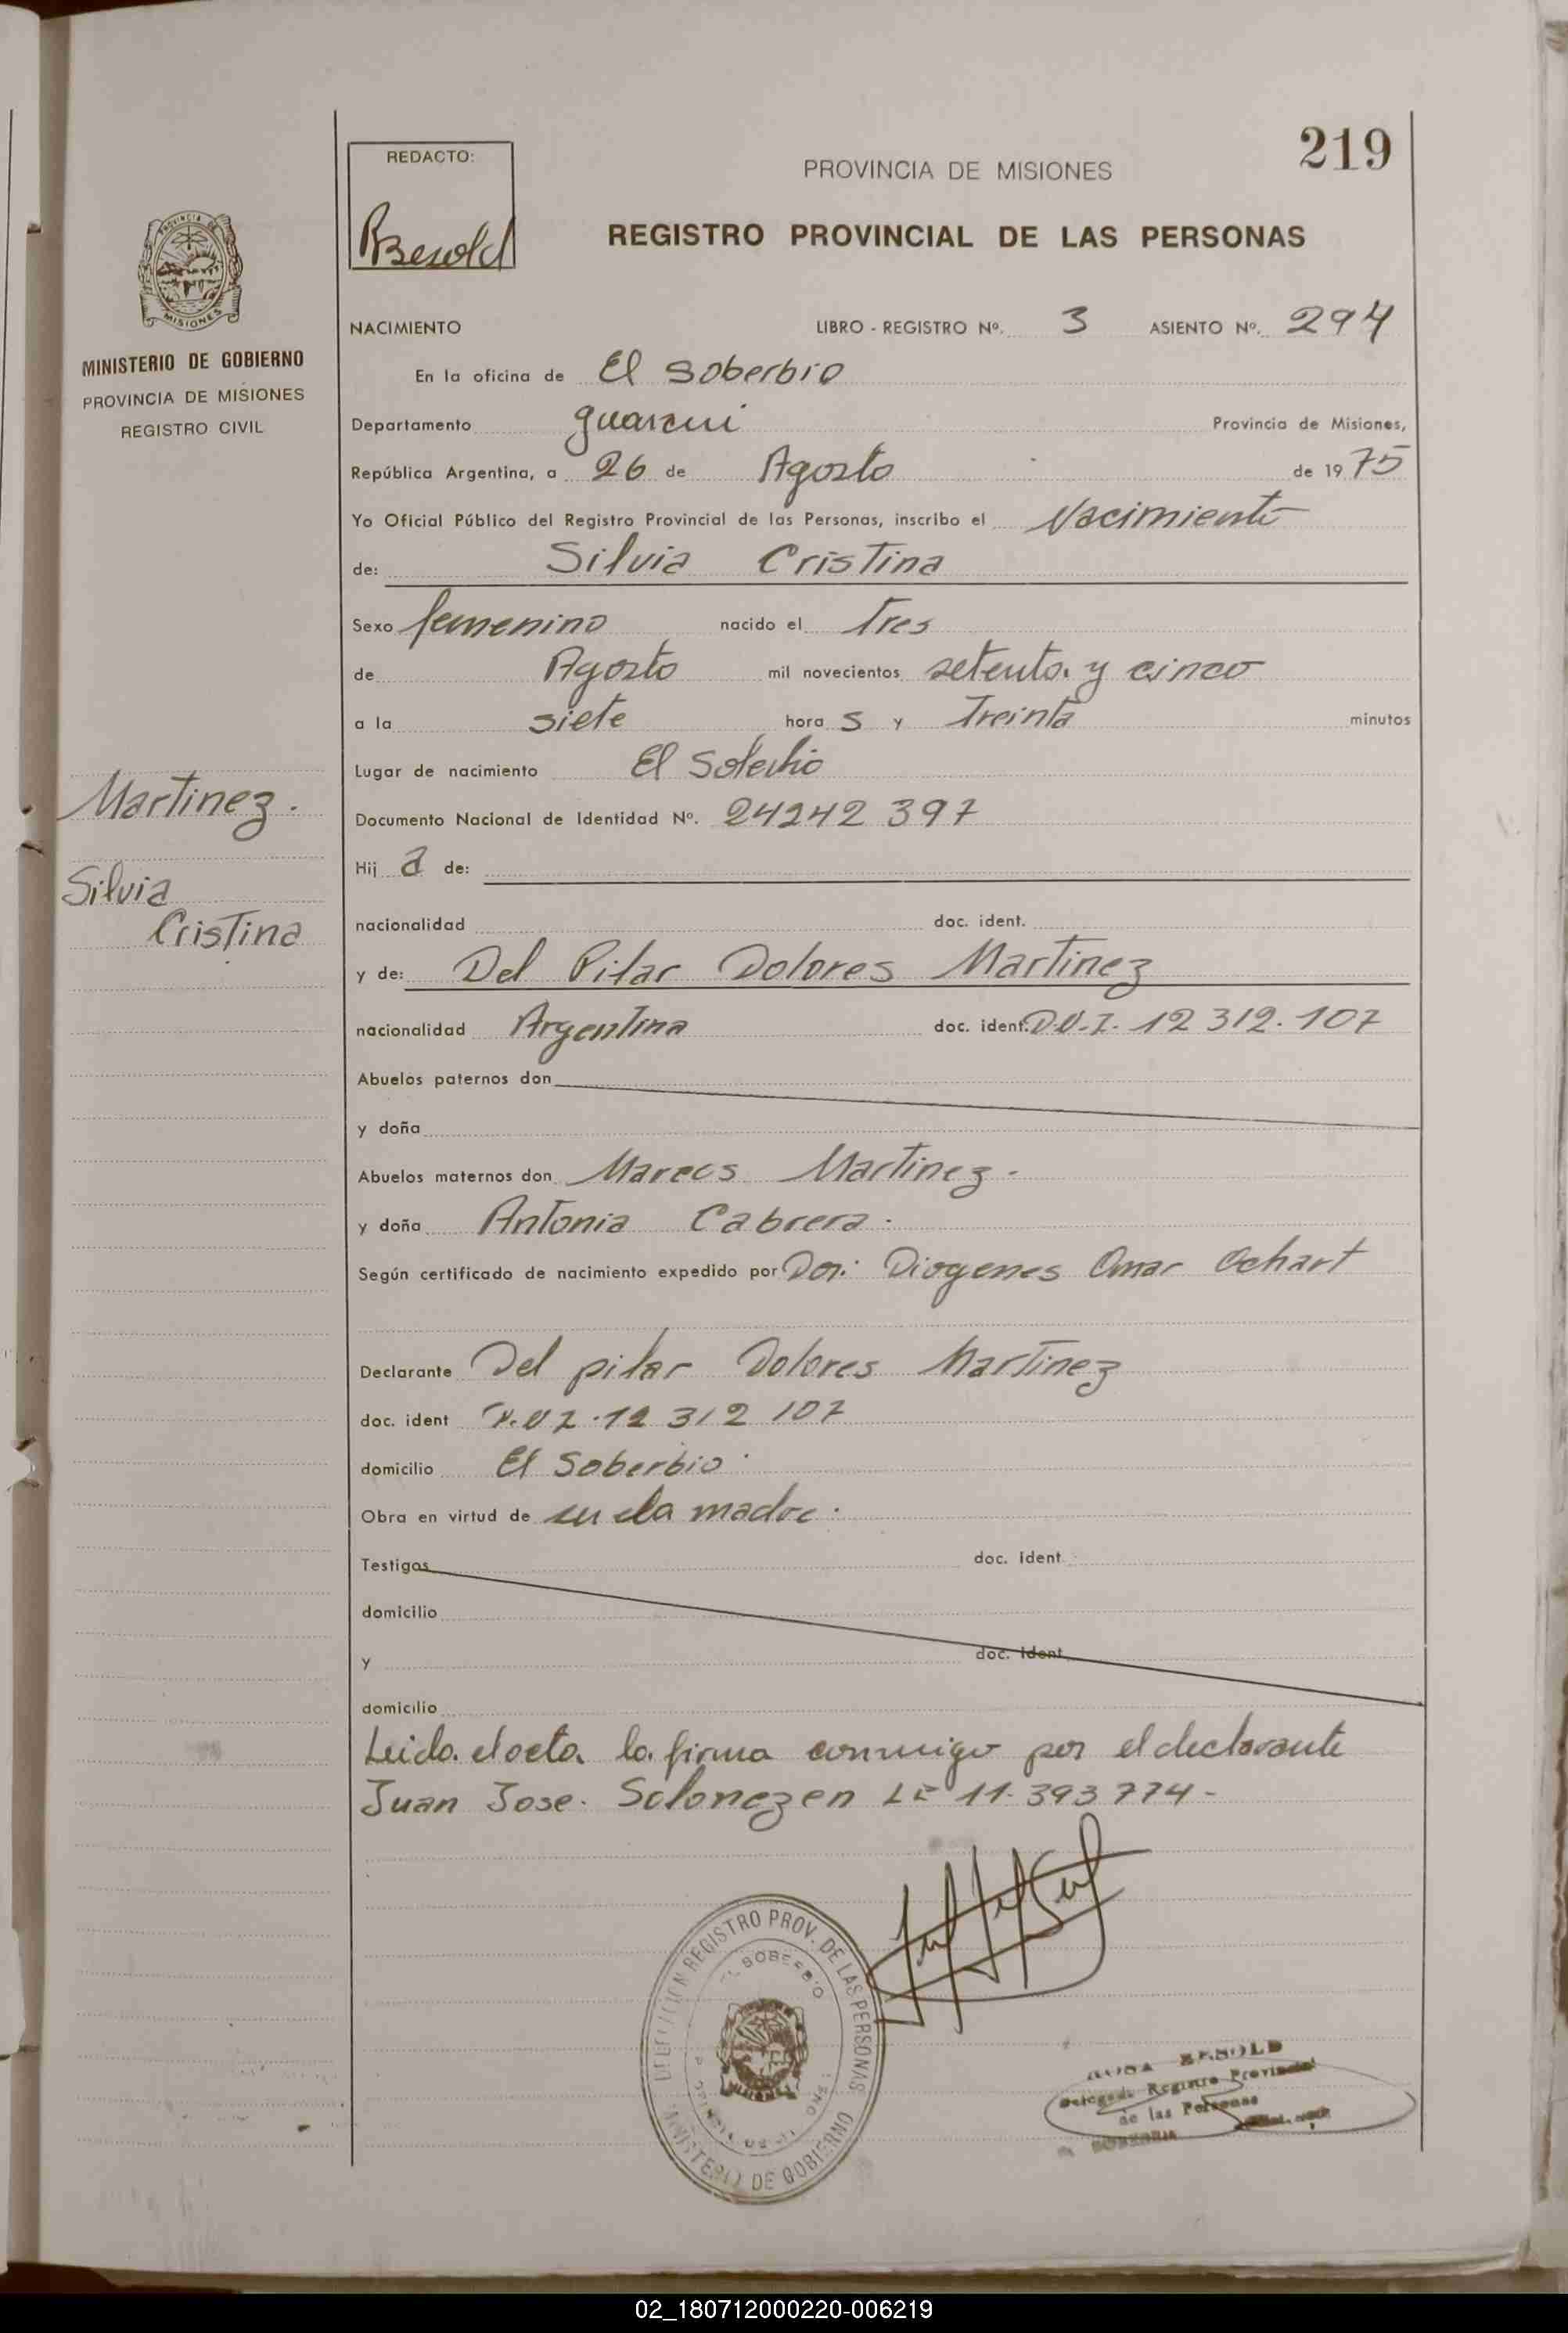 219
REDACTO:
Besold
PROVINCIA DE MISIONES
REGISTRO PROVINCIAL DE LAS PERSONAS
PROVINCIA DE
MISIONES
MINISTERIO DE GOBIERNO
PROVINCIA DE MISIONES
REGISTRO CIVIL
NACIMIENTO LIBRO - REGISTRO Nº. 3 ASIENTO Nº. 294
En la oficina de El Soberbio
Departamento guarani Provincia de Misiones,
República Argentina, a 26 de Agosto de 1975
Yo Oficial Público del Registro Provincial de las Personas, inscribo el Nacimiento
de: Silvia Cristina
Sexo femenino nacido el Tres
de Agosto mil novecientos setenta y cinco
a la siete hora s y Treinta minutos
Lugar de nacimiento El Soberbio
Documento Nacional de Identidad Nº. 24242 397
Martinez.
Silvia
Cristina
Hij a de:
nacionalidad doc. ident.
y de: Del Pilar Dolores Martinez
nacionalidad Argentina doc. ident. D.N.I. 12 312.107
Abuelos paternos don
y doña
Abuelos maternos don Marcos Martinez -
y doña Antonia Cabrera.
Según certificado de nacimiento expedido por Diogenes Omar Ochart
Declarante Del pilar Dolores Martinez
doc. ident D.N.I. 12 312 107
domicilio El Soberbio.
Obra en virtud de la madre.
Testigos doc. ident.
domicilio
y doc. ident.
domicilio
Leida el acta la firma conmigo por el declarante
Juan Jose. LE 11.393 774-
DELEGACION REGISTRO PROV. DE LAS PERSONAS
EL SOBERBIO
MISIONES
MINISTERIO DE GOBIERNO
ROSA BESOLD
Delegada Registro Provincial
de las Personas
02_180712000220-006219